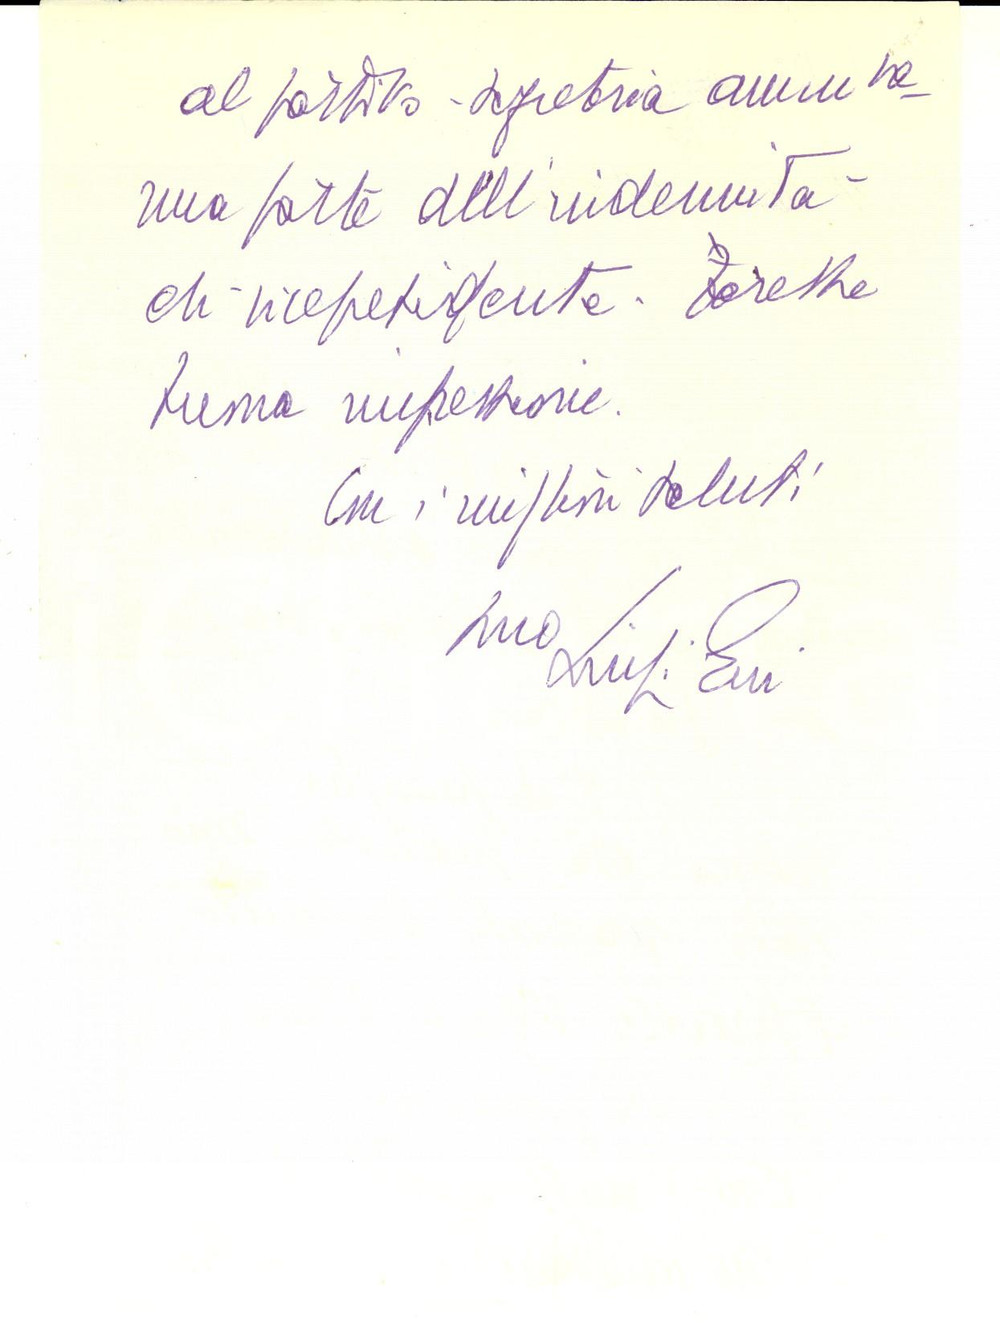 al partito - segreteria amm.va -
una parte dell'indennità
di vicepresidente. Sarebbe
buona impressione.
Con i migliori saluti
suo Luigi